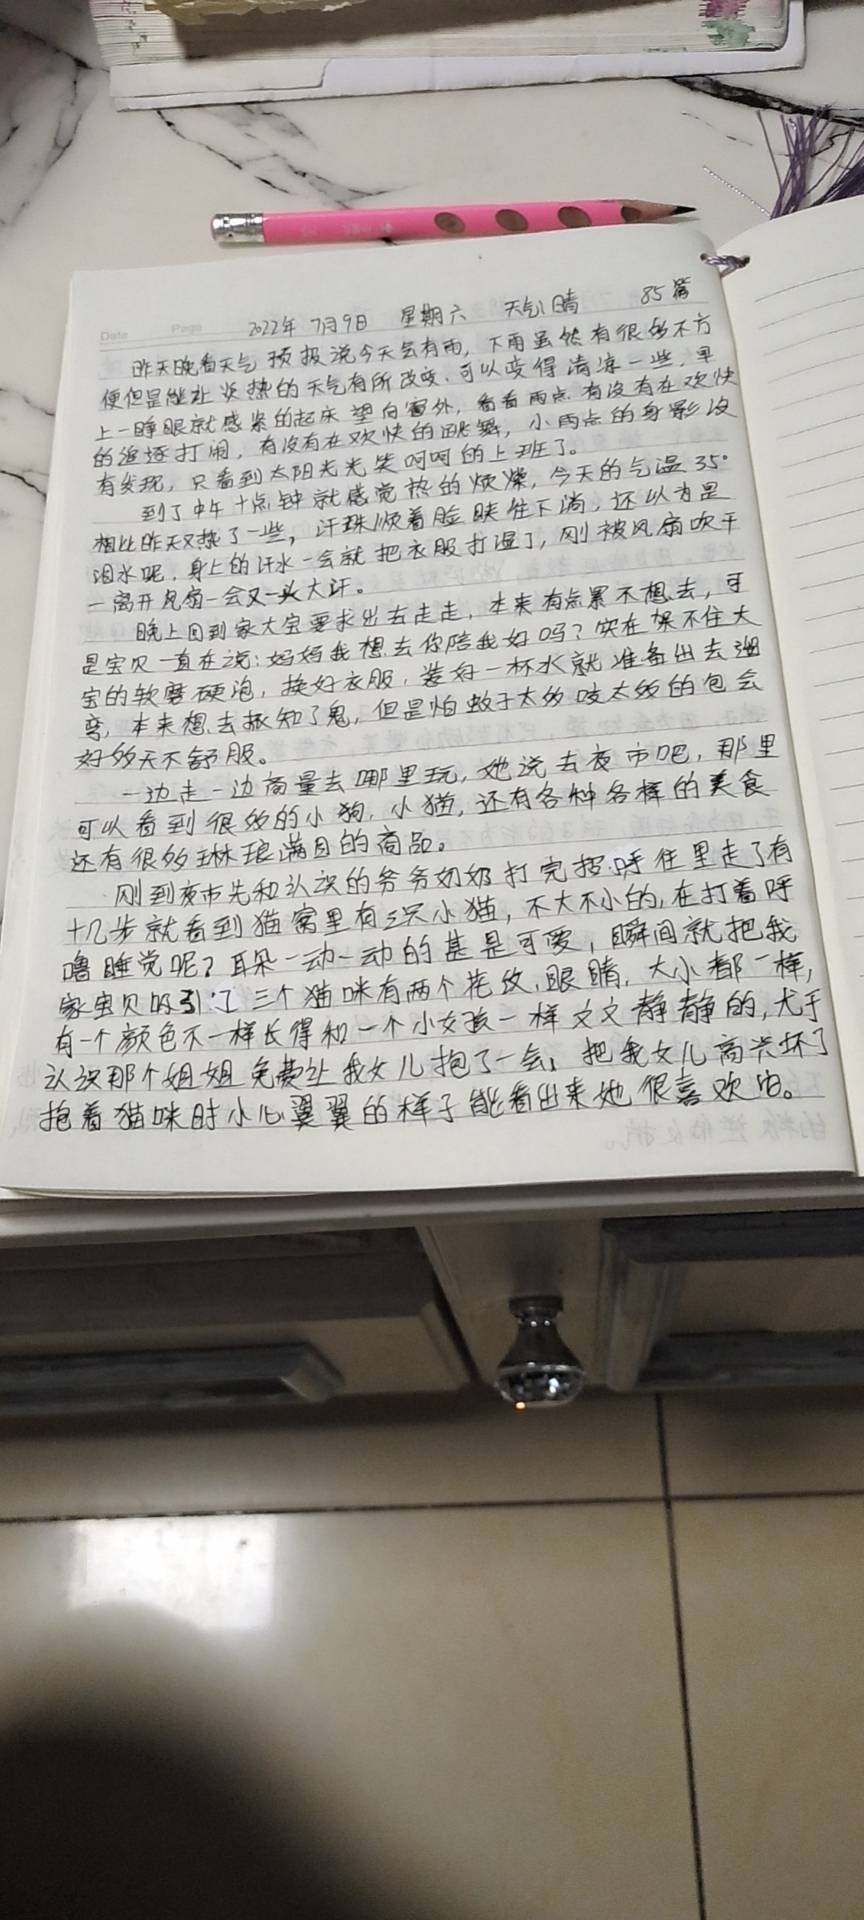 Date Page 2022年 7月9日 星期六 天气晴 85篇
昨天晚看天气预报说今天会有雨，下雨虽然有很多不方
便但是能让炎热的天气有所改变，可以变得清凉一些，早
上一睁眼就感紧的起床望向窗外，看看雨点有没有在欢快
的追逐打闹，有没有在欢快的跳舞，小雨点的身影没
有发现，只看到太阳光光笑呵呵的上班了。
到了中午十点钟就感觉热的烦燥，今天的气温35°
相比昨天又热了一些，汗珠顺着脸颊往下淌，还以为是
泪水呢，身上的汗水一会就把衣服打湿了，刚被风扇吹干
一离开风扇一会又一头大汗。
晚上回到家大宝要求出去走走，本来有点累不想去，可
是宝贝一直在说：妈妈我想去你陪我好吗？实在架不住大
宝的软磨硬泡，换好衣服，装好一杯水就准备出去遛
弯，本来想去抓知了鬼，但是怕蚊子太多咬太多的包会
好多天不舒服。
一边走一边商量去哪里玩，她说去夜市吧，那里
可以看到很多的小狗，小猫，还有各种各样的美食
还有很多琳琅满目的商品。
刚到夜市先和认识的爷爷奶奶打完招呼往里走了有
十几步就看到猫窝里有三只小猫，不大不小的，在打着呼
噜睡觉呢？耳朵一动一动的甚是可爱，瞬间就把我
家宝贝吸引了三个猫咪有两个花纹，眼睛，大小都一样，
有一个颜色不一样长得和一个小女孩一样文文静静的，尤于
认识那个姐姐免费让我女儿抱了一会，把我女儿高兴坏了
抱着猫咪时小心翼翼的样子能看出来她很喜欢的。